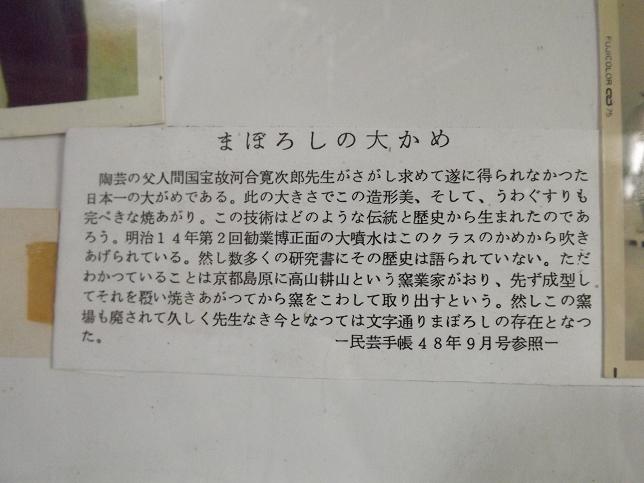 まぼろしの大かめ
陶芸の父人間国宝故河合寛次郎先生がさがし求めて遂に得られなかつた
日本一の大がめである。此の大きさでこの造形美、そして、うわぐすりも
完ぺきな焼あがり。この技術はどのような伝統と歴史から生まれたのであ
ろう。明治14年第2回勧業博正面の大噴水はこのクラスのかめから吹き
あげられている。然し数多くの研究書にその歴史は語られていない。ただ
わかつていることは京都島原に高山耕山という窯業家がおり、先ず成型し
てそれを覆い焼きあがつてから窯をこわして取り出すという。然しこの窯
場も廃されて久しく先生なき今となつては文字通りまぼろしの存在となつ
た。
ー民芸手帳48年9月号参照ー
FUJICOLOR 75